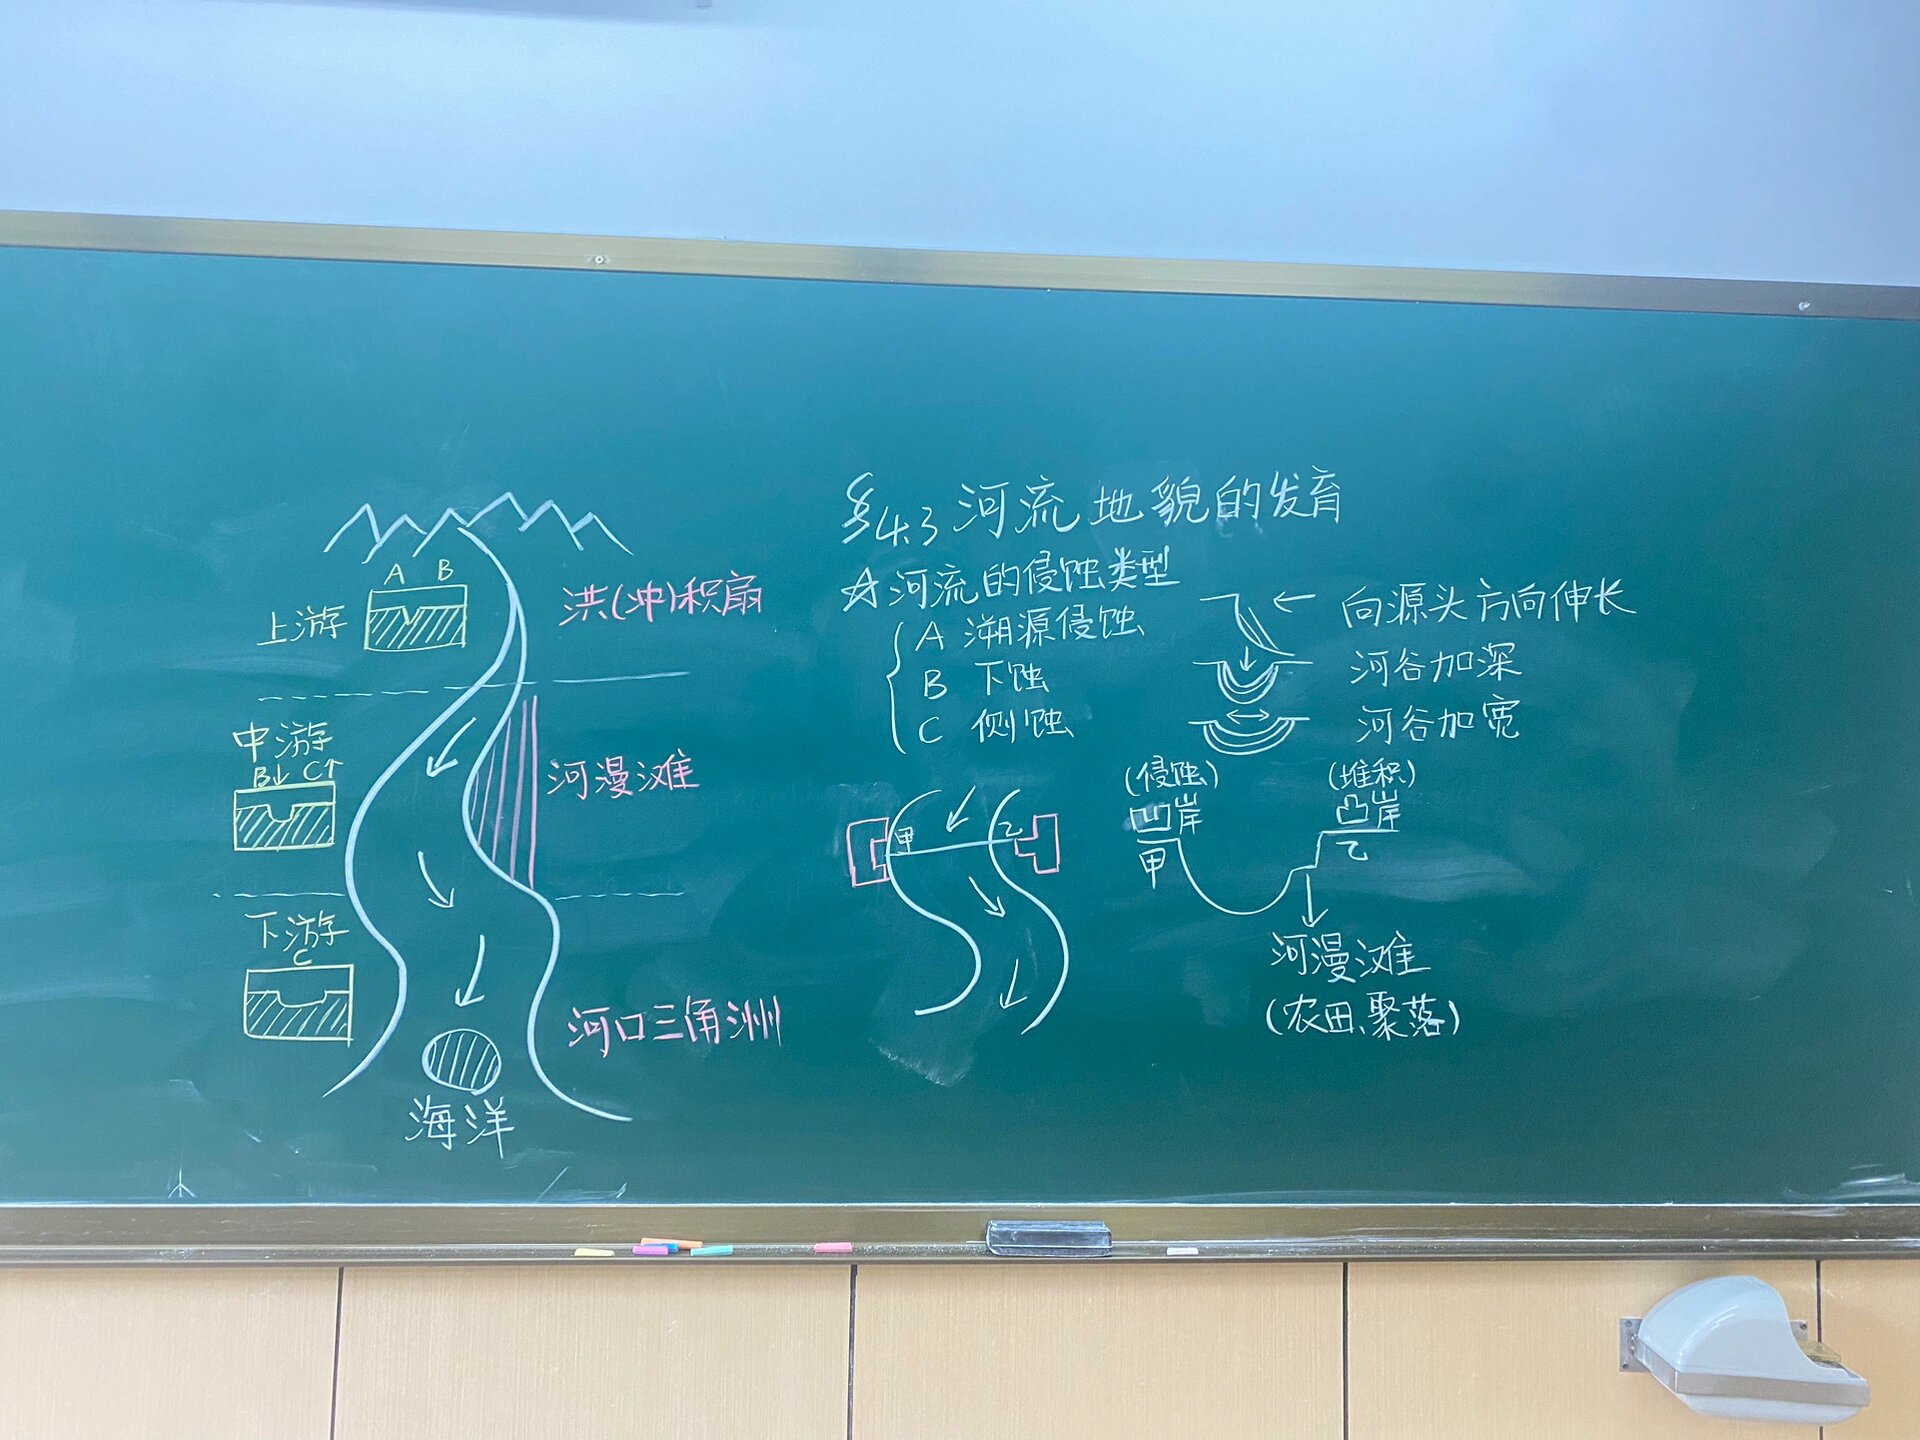 A B
上游
洪(冲)积扇
中游
B↓ C↑
河漫滩
下游
C
河口三角洲
海洋
§4.3 河流地貌的发育
☆河流的侵蚀类型
A 溯源侵蚀
向源头方向伸长
B 下蚀
河谷加深
C 侧蚀
河谷加宽
甲 乙
凹 凸
(侵蚀) (堆积)
凹岸 凸岸
甲 乙
河漫滩
(农田、聚落)